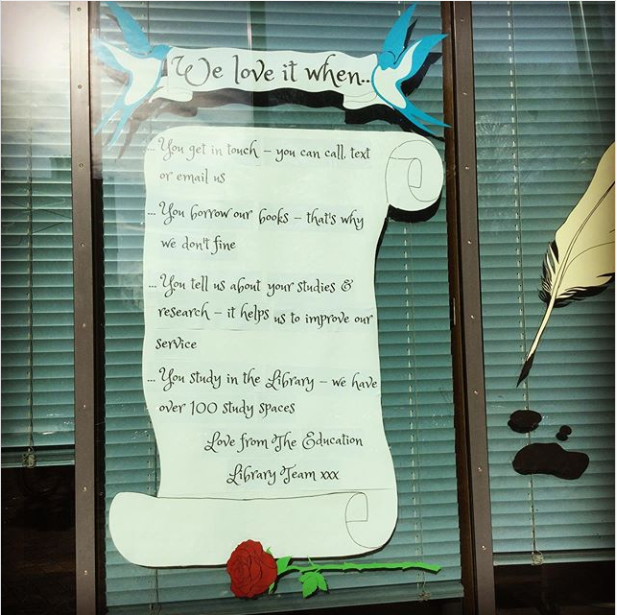 We love it when..
... You get in touch – you can call, text
or email us
... You borrow our books – that's why
we don't fine
... You tell us about your studies &
research – it helps us to improve our
service
... You study in the Library – we have
over 100 study spaces
Love from The Education
Library Team xxx